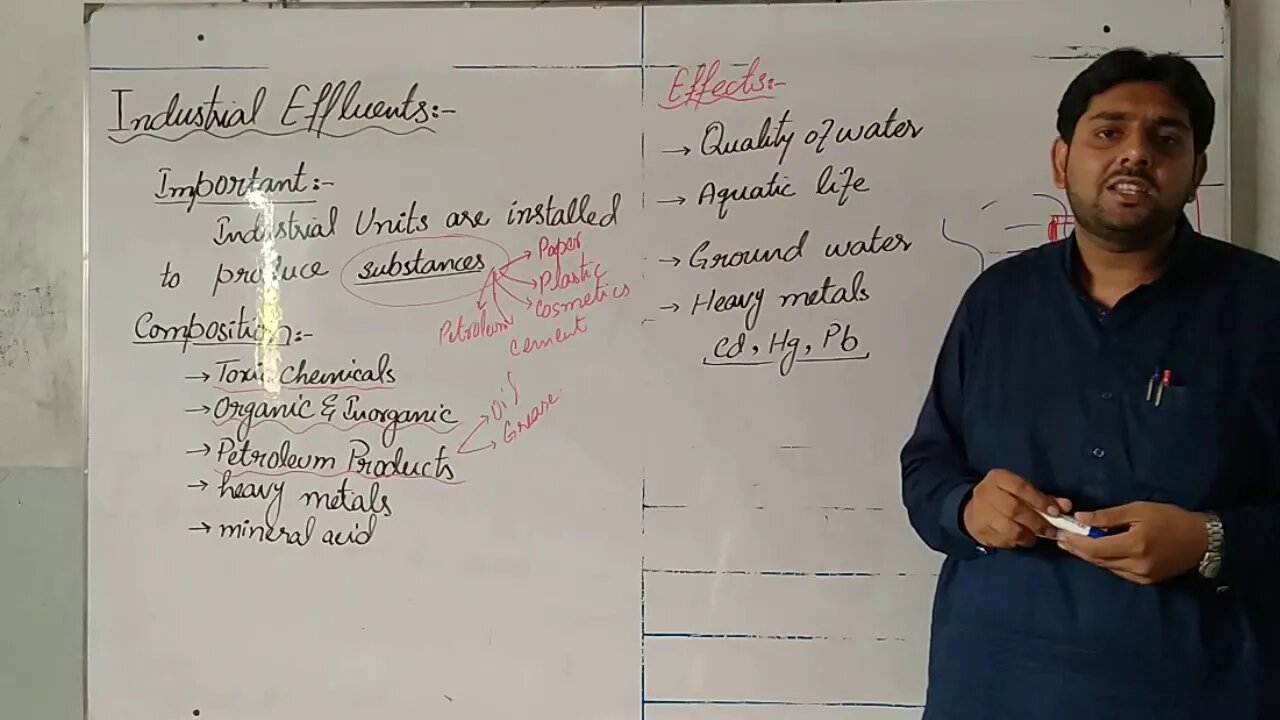 Industrial Effluents:-
Important:-
Industrial Units are installed
to produce substances
Paper
Plastic
Cosmetics
Cement
Petroleum
Composition:-
→ Toxic Chemicals
→ Organic & Inorganic
→ Petroleum Products
Oil
Grease
→ heavy metals
→ mineral acid
Effects:-
→ Quality of water
→ Aquatic life
→ Ground water
→ Heavy metals
Cd, Hg, Pb